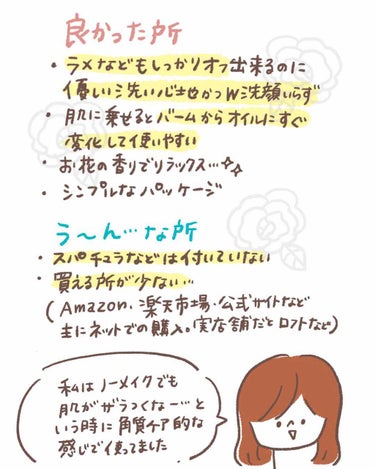 良かった所
・ラメなどもしっかりオフ出来るのに
優しい洗い心地かつW洗顔いらず
・肌に乗せるとバームからオイルにすぐ
変化して使いやすい
・お花の香りでリラックス…✧✧
・シンプルなパッケージ
う〜ん…な所
・スパチュラなどは付いていない
・買える所が少ない…
(Amazon、楽天市場・公式サイトなど
主にネットでの購入。実店舗だとロフトなど)
私はノーメイクでも
肌がザラつくな〜…と
いう時に角質ケア的な
感じで使ってました